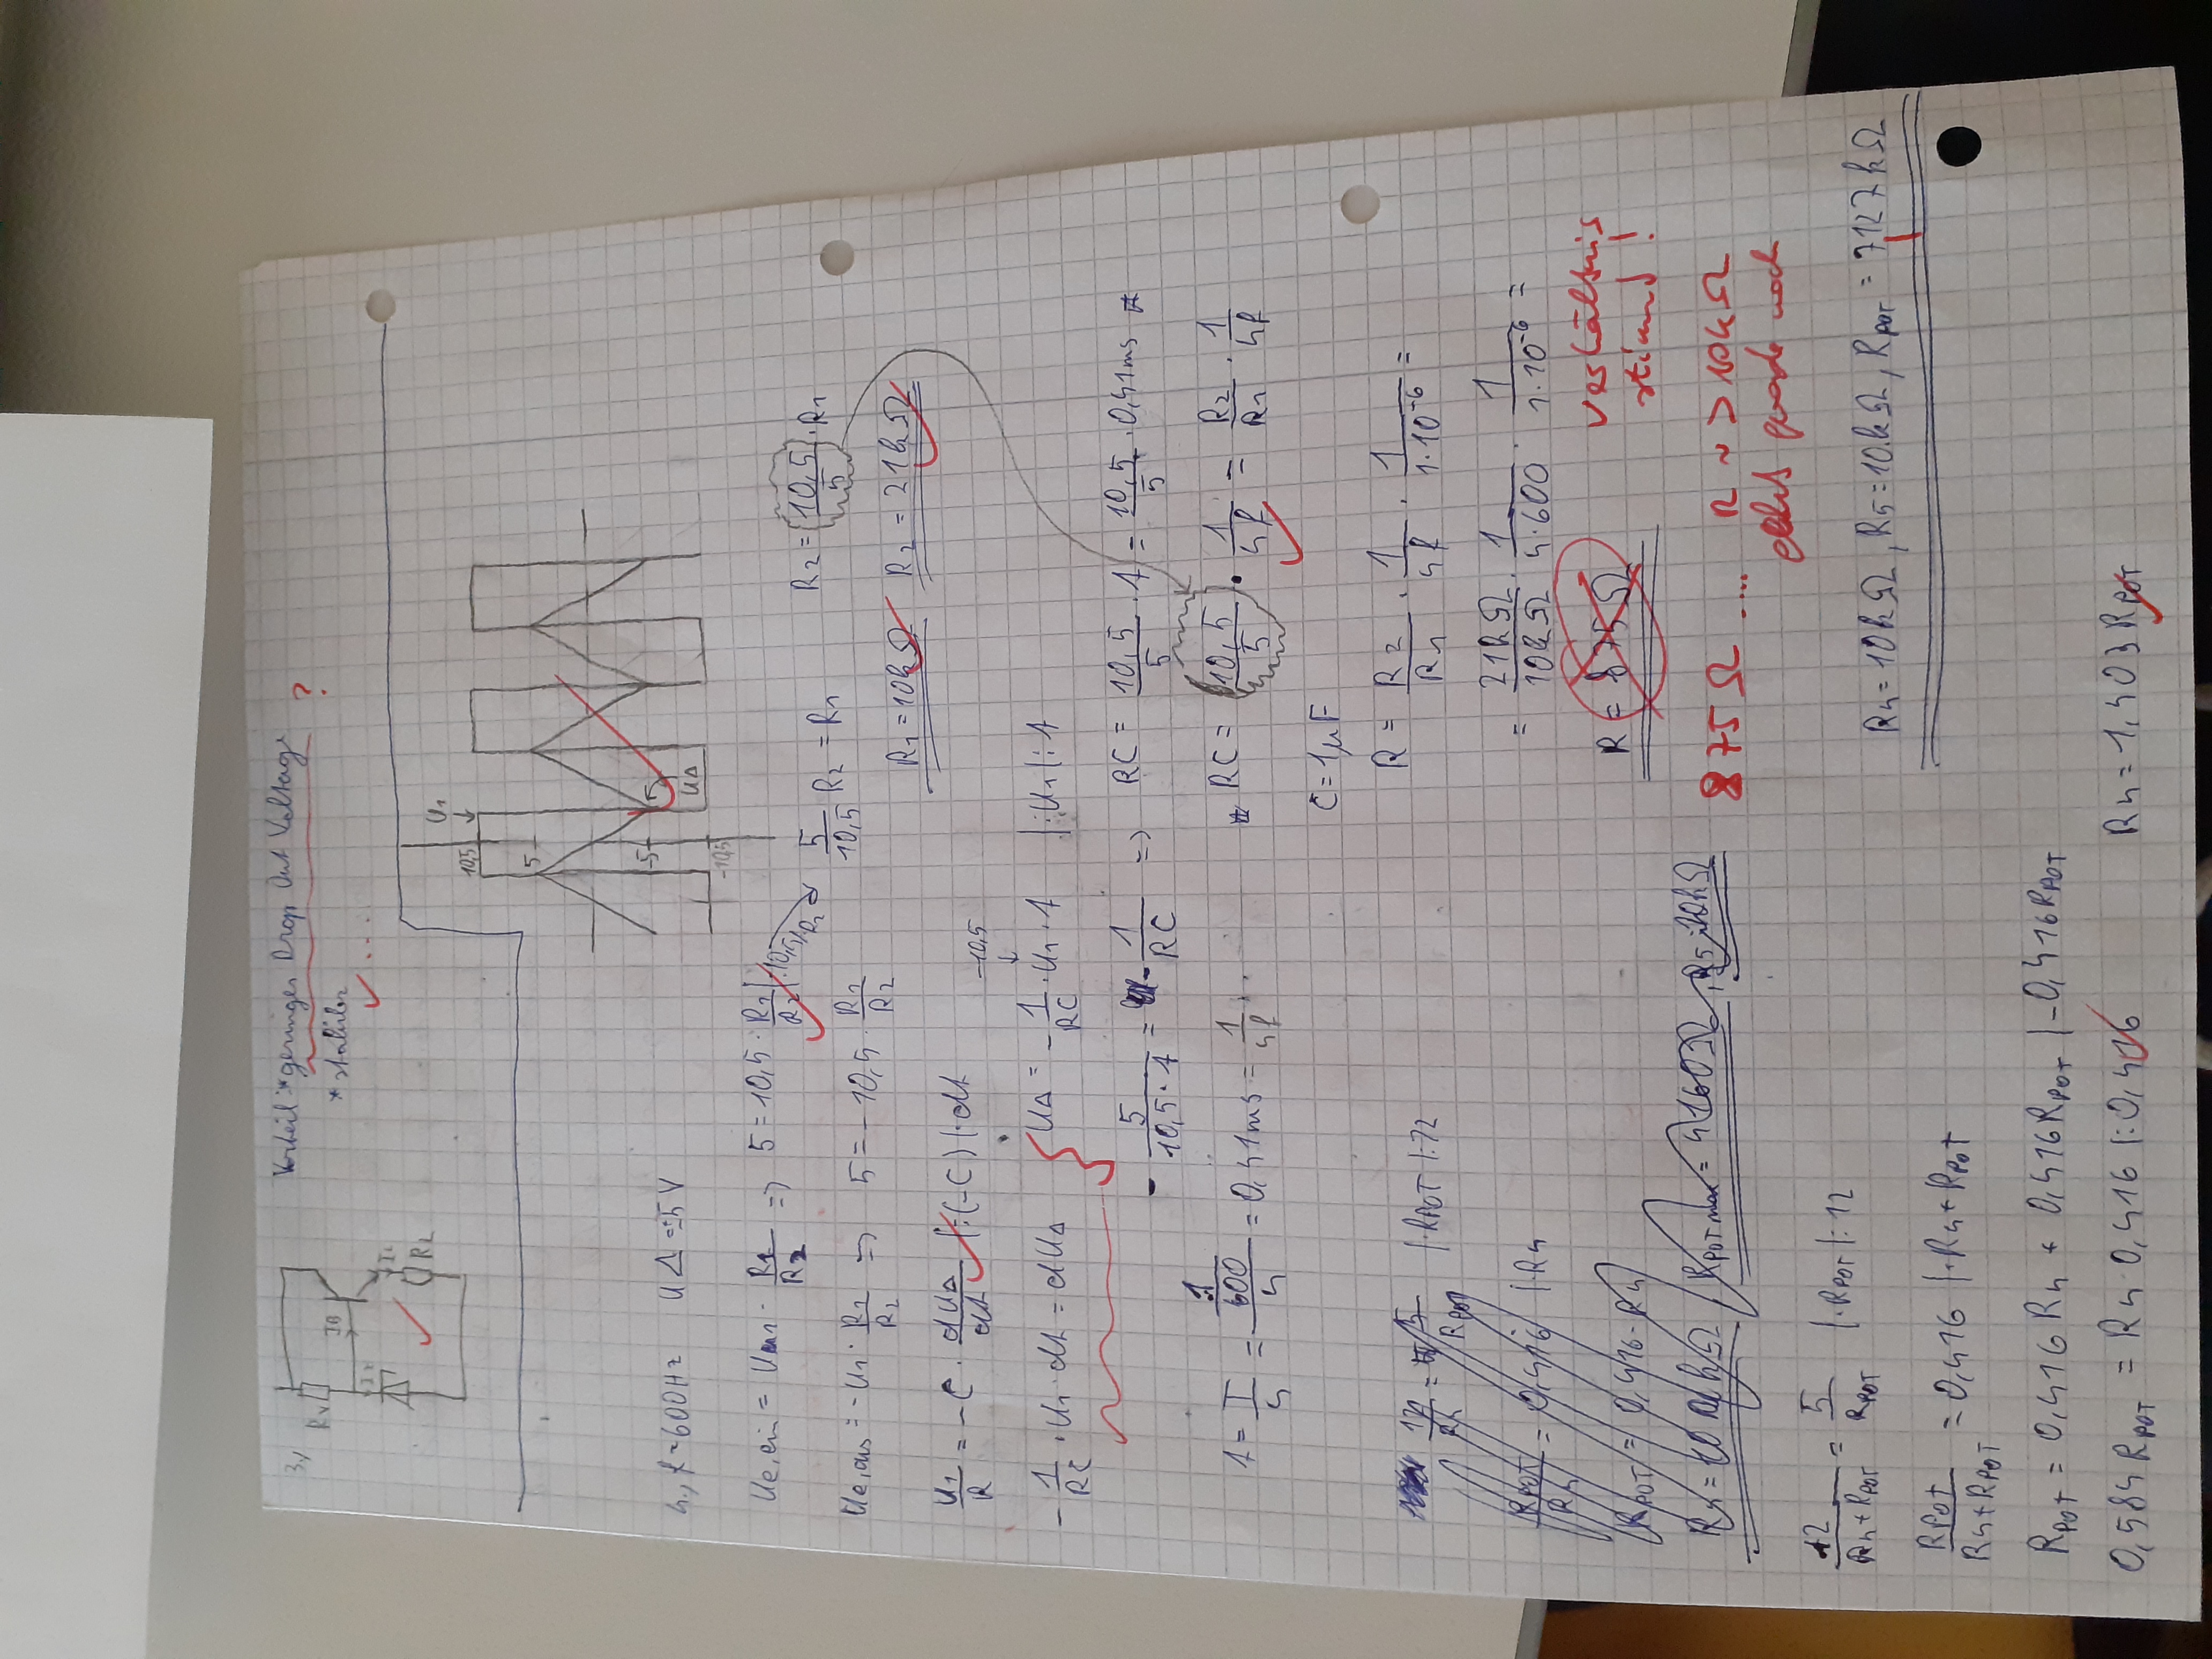 3.)
Vorteil: * geringer Drop Out Voltage ?
* stabiler
....
RV
IB
IZ
IL
RL
U1
10,5
5
-5
UΔ
-10,5
4., f=600Hz UΔ=±5V
Ue,ein = Um1 · R1/R2 => 5 = 10,5 · R1/R2 |:10,5|·R2
5/10,5 R2 = R1
R2 = 10,5/5 · R1
Ue,aus = -U1 · R1/R2 => 5 = -10,5 · R1/R2
R1 = 10kΩ R2 = 21kΩ
U1/R = -C · dUΔ/dt |:(-C)|·dt
-10,5
-1/RC · U1 · dt = dUΔ
UΔ = -1/RC · U1 · t |:U1|:t
-5/(10,5·t) = -1/RC => RC = 10,5/5 · t = 10,5/5 · 0,41ms *
t = T/4 = (1/600)/4 = 0,41ms = 1/4f
* RC = 10,5/5 · 1/4f = R2/R1 · 1/4f
C = 1µF
R = R2/R1 · 1/4f · 1/(1·10⁻⁶) =
= 21kΩ/10kΩ · 1/(4·600) · 1/(1·10⁻⁶) =
R = 875Ω
Verhältnis
stimmt !
875Ω .... R ~> 10kΩ
gerade noch
12/R4 = 5/RPOT |·RPOT |:12
RPOT/R4 = 0,416 |·R4
RPOT = 0,416 · R4
R4 = 10kΩ, RPOT max = 4160Ω, R5 = 10kΩ
12/(R4+RPOT) = 5/RPOT |·RPOT|:12
R4 = 10kΩ, R5 = 10kΩ, RPOT = 7127kΩ
RPOT/(R4+RPOT) = 0,416 |·R4+RPOT
RPOT = 0,416 R4 + 0,416RPOT |-0,416RPOT
0,584 RPOT = R4 0,416 |:0,416 R4 = 1,403 RPOT